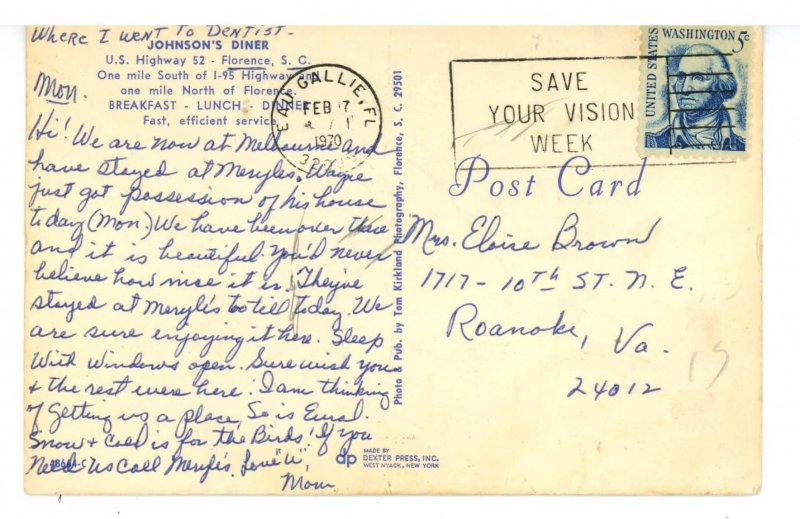 Where I went to Dentist-
JOHNSON'S DINER
U.S. Highway 52 - Florence, S. C.
One mile South of I-95 Highway and
one mile North of Florence.
BREAKFAST - LUNCH - DINNER
Fast, efficient service
Mon.
Hi! We are now at Melbourne and
have stayed at Meryles. Wayne
just got possession of his house
today (Mon.) We have been over there
and it is beautiful. You'd never
believe how nice it is. They've
stayed at Meryle's too till today. We
are sure enjoying it here. Sleep
With Windows open. Sure wish you
+ the rest were here. I am thinking
of getting us a place, So is Eural.
Snow + Cold is for the Birds! If you
Need us Call Meryle's. Love "U",
Mom
Photo & Pub. by Tom Kirkland Photography, Florence, S. C. 29501
dp
MADE BY
DEXTER PRESS, INC.
WEST NYACK, NEW YORK
EAU GALLIE, FL
FEB 17
1970
SAVE
YOUR VISION
WEEK
UNITED STATES
WASHINGTON 5c
Post Card
Mrs. Eloise Brown
1717-10th ST. N.E.
Roanoke, Va.
24012
15